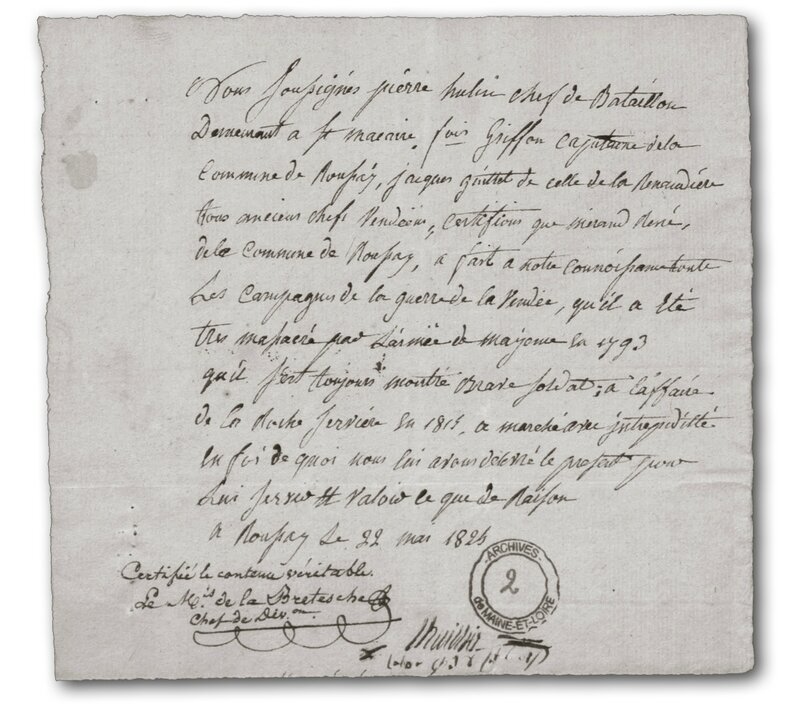 Nous soussignés pierre hulin chef de Bataillon
Demeurant a St macaire, fois Griffon capitaine de la
Commune de Roussay, jacques guittet de celle de la Renaudière
tous anciens chefs Vendéens, certifions que mirand René,
de la Commune de Roussay, a fait a notre connoissance toute
Les campagnes de la guerre de la Vendée, qu'il a été
tres massacré par L'armée de mayence En 1793
qu'il s'est toujours montré Brave soldat, a L'affaire
de la Roche serviere En 1815, a marché avec intrepidité
En foi de quoi nous lui avons délivré le present pour
Lui servir Et valoir ce que de Raison
a Roussay Le 22 mai 1825
Certifié le contenu véritable.
Le Mis de la Bretesche
Chef de Divon
ARCHIVES
2
de MAINE-ET-LOIRE